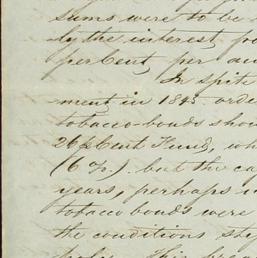 sums were to be
by the interest
per Cent per an
In spit
ment in 1845 orde
tobacco-bonds shou
26 p Cent Fund, wh
(6 %). but the ca
years, perhaps
tobacco bonds were
the conditions sti